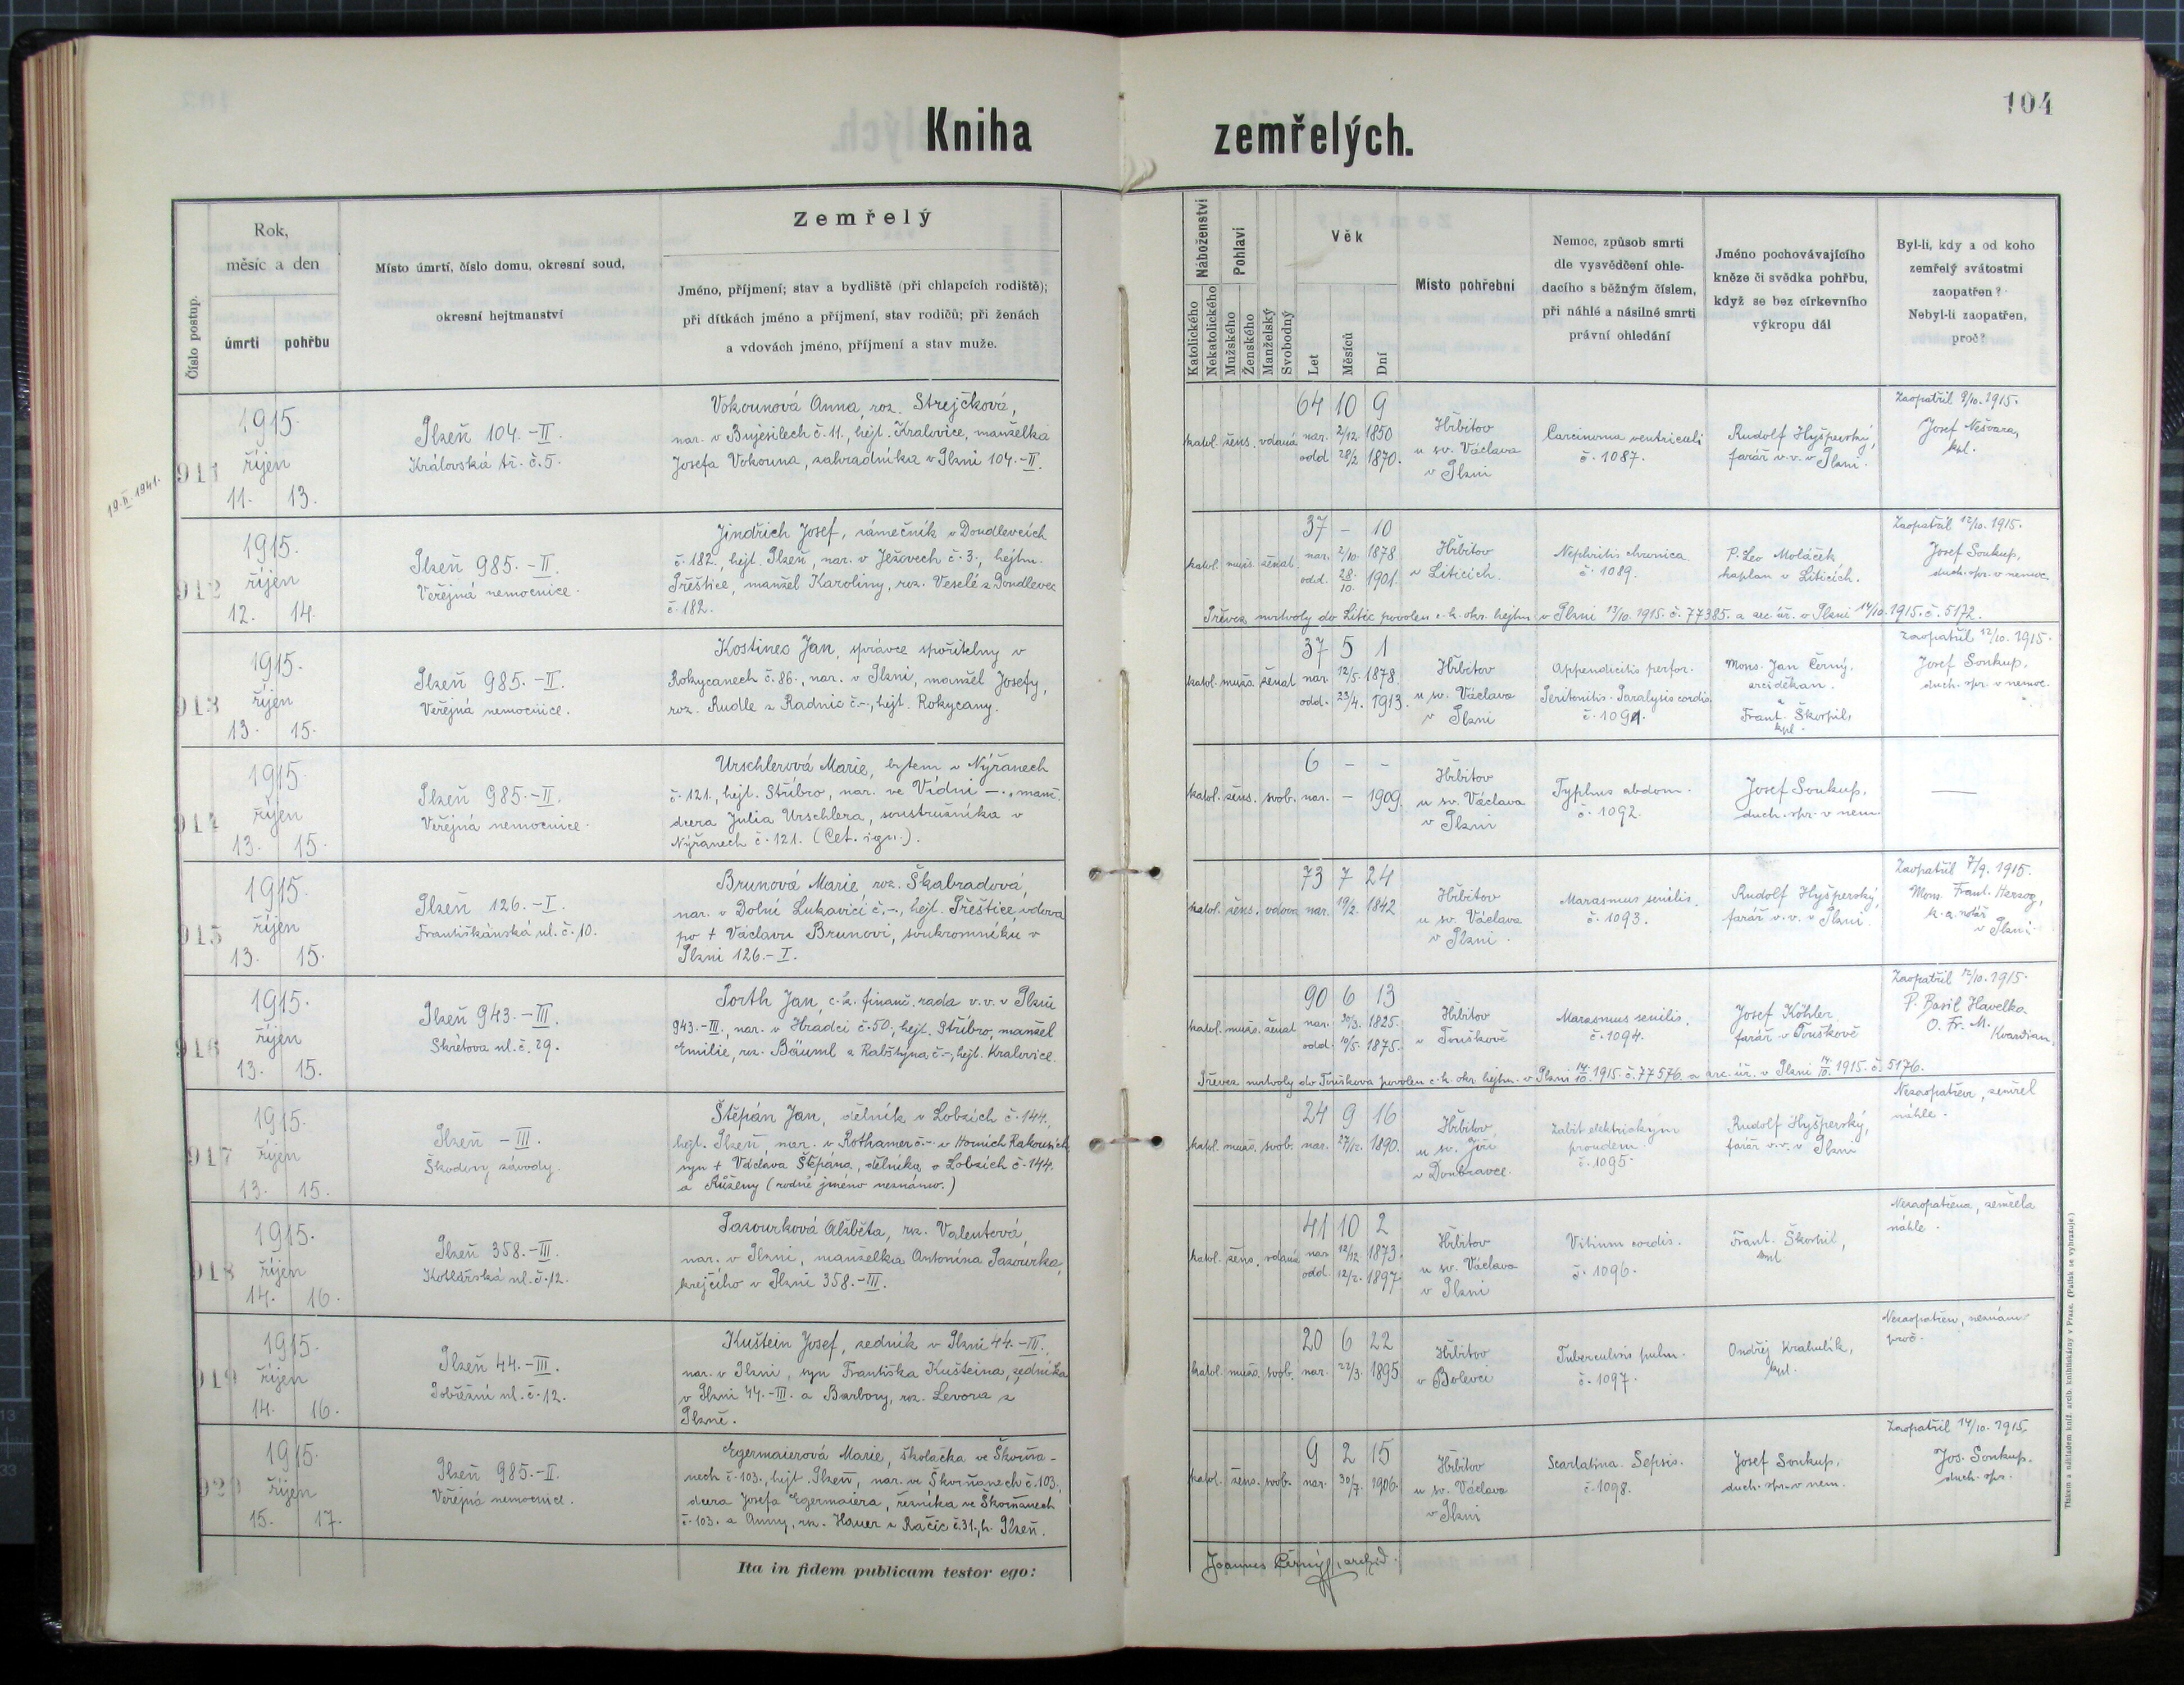 104
Kniha zemřelých.
Číslo postup.
Rok,
měsíc a den
úmrtí pohřbu
Místo úmrtí, číslo domu, okresní soud,
okresní hejtmanství
Zemřelý
Jméno, příjmení; stav a bydliště (při chlapcích rodiště);
při dítkách jméno a příjmení, stav rodičů; při ženách
a vdovách jméno, příjmení a stav muže.
Náboženství
Katolického
Nekatolického
Pohlaví
Mužského
Ženského
Manželský
Svobodný
Věk
Let
Měsíců
Dní
Místo pohřební
Nemoc, způsob smrti
dle vysvědčení ohle-
dacího s běžným číslem,
při náhlé a násilné smrti
právní ohledání
Jméno pochovávajícího
kněze či svědka pohřbu,
když se bez církevního
výkropu dál
Byl-li, kdy a od koho
zemřelý svátostmi
zaopatřen?
Nebyl-li zaopatřen,
proč?
19.II.1941.
911
1915.
říjen
11. 13.
Plzeň 104.-II.
Královská tř. č.5.
Vokounová Anna, roz. Strejčková,
nar. v Bujesilech č.11., hejt. Kralovice, manželka
Josefa Vokouna, zahradníka v Plzni 104.-II.
katol. žens. vdaná
64 10 9
nar. 2/12. 1850
odd. 28/2 1870.
Hřbitov
u sv. Václava
v Plzni
Carcinoma ventriculi
č. 1087.
Rudolf Hyšperský,
farář v.v. v Plzni.
Zaopatřil 9/10. 1915.
Josef Nešvara,
kpl.
912
1915.
říjen
12. 14.
Plzeň 985.-II.
Veřejná nemocnice.
Jindřich Josef, zámečník v Doudlevcích
č.182., hejt. Plzeň, nar. v Ježovech č.3., hejtm.
Přeštice, manžel Karoliny, roz. Veselé z Doudlevec
č.182.
katol. mužs. ženat
37 - 10
nar. 2/10. 1878
odd. 28./10. 1901.
Hřbitov
v Liticích.
Nephritis chronica
č. 1089.
P. Leo Moláček,
kaplan v Liticích.
Zaopatřil 12/10. 1915.
Josef Soukup,
duch. spr. v nemoc.
Převez mrtvoly do Litic povolen c.k. okr. hejtm. v Plzni 13/10. 1915. č. 77385. a arc. úř. v Plzni 14/10. 1915. č. 5172.
913
1915.
říjen
13. 15.
Plzeň 985.-II.
Veřejná nemocnice.
Kostinec Jan, správce spořitelny v
Rokycanech č.86., nar. v Plzni, manžel Josefy,
roz. Rudle z Radnic č.-, hejt. Rokycany.
katol. mužs. ženat
37 5 1
nar. 12/5. 1878.
odd. 23/4. 1913.
Hřbitov
u sv. Václava
v Plzni
Appendicitis perfor.
Peritonitis. Paralysis cordis.
č. 1091.
Mons. Jan Černý,
arciděkan.
a
Frant. Škorpil,
kpl.
Zaopatřil 12/10. 1915.
Josef Soukup,
duch. spr. v nemoc.
914
1915.
říjen
13. 15.
Plzeň 985.-II.
Veřejná nemocnice.
Urschlerová Marie, bytem v Nýřanech
č.121., hejt. Stříbro, nar. ve Vídni —., manž.
dcera Julia Urschlera, soustružníka v
Nýřanech č.121. (Cet. ign.).
katol. žens. svob.
6 - -
nar. - 1909.
Hřbitov
u sv. Václava
v Plzni
Typhus abdom.
č. 1092.
Josef Soukup,
duch. spr. v nem.
—
915
1915.
říjen
13. 15.
Plzeň 126.-I.
Františkánská ul. č.10.
Brunová Marie, roz. Škabradová,
nar. v Dolní Lukavici č.-, hejt. Přeštice, vdova
po + Václavu Brunovi, soukromníku v
Plzni 126.-I.
katol. žens. vdova
73 7 24
nar. 19/2. 1842
Hřbitov
u sv. Václava
v Plzni.
Marasmus senilis.
č. 1093.
Rudolf Hyšperský,
farář v.v. v Plzni
Zaopatřil 7/9. 1915.
Mons. Frant. Herzog,
k.a. notář
v Plzni.
916
1915.
říjen
13. 15.
Plzeň 943.-III.
Skrétova ul. č. 29.
Porth Jan, c.k. finanč. rada v.v. v Plzni
943.-III., nar. v Hradci č.50., hejt. Stříbro, manžel
Emilie, roz. Bäuml z Rabštýna č.-, hejt. Kralovice.
katol. mužs. ženat
90 6 13
nar. 30/3. 1825.
odd. 10/5. 1875.
Hřbitov
v Touškově
Marasmus senilis.
č. 1094.
Josef Köhler
farář v Touškově
Zaopatřil 12/10. 1915.
P. Basil Havelka
O. Fr. M.
Kvardian.
Převez mrtvoly do Touškova povolen c.k. okr. hejtm. v Plzni 14/10. 1915. č. 77576. a arc. úř. v Plzni 14/10. 1915. č. 5176.
917
1915.
říjen
13. 15.
Plzeň -III.
Škodovy závody.
Štěpán Jan, dělník v Lobzích č.144.,
hejt. Plzeň, nar. v Rothamer č.- v Horních Rakousích,
syn + Václava Štěpána, dělníka, v Lobzích č.144.
a Růženy (rodné jméno neznámo.)
katol. mužs. svob.
24 9 16
nar. 27/12. 1890.
Hřbitov
u sv. Jiří
v Doubravce.
Zabit elektrickým
proudem
č. 1095.
Rudolf Hyšperský,
farář v.v. v Plzni
Nezaopatřen, zemřel
náhle.
918
1915.
říjen
14. 16.
Plzeň 358.-III.
Kotlářská ul. č.12.
Pazourková Alžběta, roz. Valentová,
nar. v Plzni, manželka Antonína Pazourka,
krejčího v Plzni 358.-III.
katol. žens. vdaná
41 10 2
nar. 12/12. 1873.
odd. 12/2. 1897.
Hřbitov
u sv. Václava
v Plzni
Vitium cordis.
č. 1096.
Frant. Škorpil,
kpl
Nezaopatřena, zemřela
náhle.
919
1915.
říjen
14. 16.
Plzeň 44.-III.
Pobřežní ul. č.12.
Kuštein Josef, zedník v Plzni 44.-III.,
nar. v Plzni, syn Františka Kušteina, zedníka
v Plzni 44.-III. a Barbory, roz. Levora z
Plzně.
katol. mužs. svob.
20 6 22
nar. 22/3. 1895
Hřbitov
v Bolevci
Tuberculosis pulm.
č. 1097.
Ondřej Krahulík,
kpl.
Nezaopatřen, neznámo
proč.
920
1915.
říjen
15. 17.
Plzeň 985.-II.
Veřejná nemocnice.
Egermaierová Marie, školačka ve Škvrňa-
nech č.103., hejt. Plzeň, nar. ve Škvrňanech č.103.,
dcera Josefa Egermaiera, řezníka ve Škvrňanech
č.103. a Anny, roz. Hauer z Račic č.31., h. Plzeň.
katol. žens. svob.
9 2 15
nar. 30/7. 1906.
Hřbitov
u sv. Václava
v Plzni
Scarlatina. Sepsis.
č. 1098.
Josef Soukup,
duch. spr. v nem.
Zaopatřil 14/10. 1915.
Jos. Soukup.
duch. spr.
Ita in fidem publicam testor ego:
Joannes Černý, archid.
Tiskem a nákladem kníž. arcib. knihtiskárny v Praze. (Patisk se vyhrazuje.)